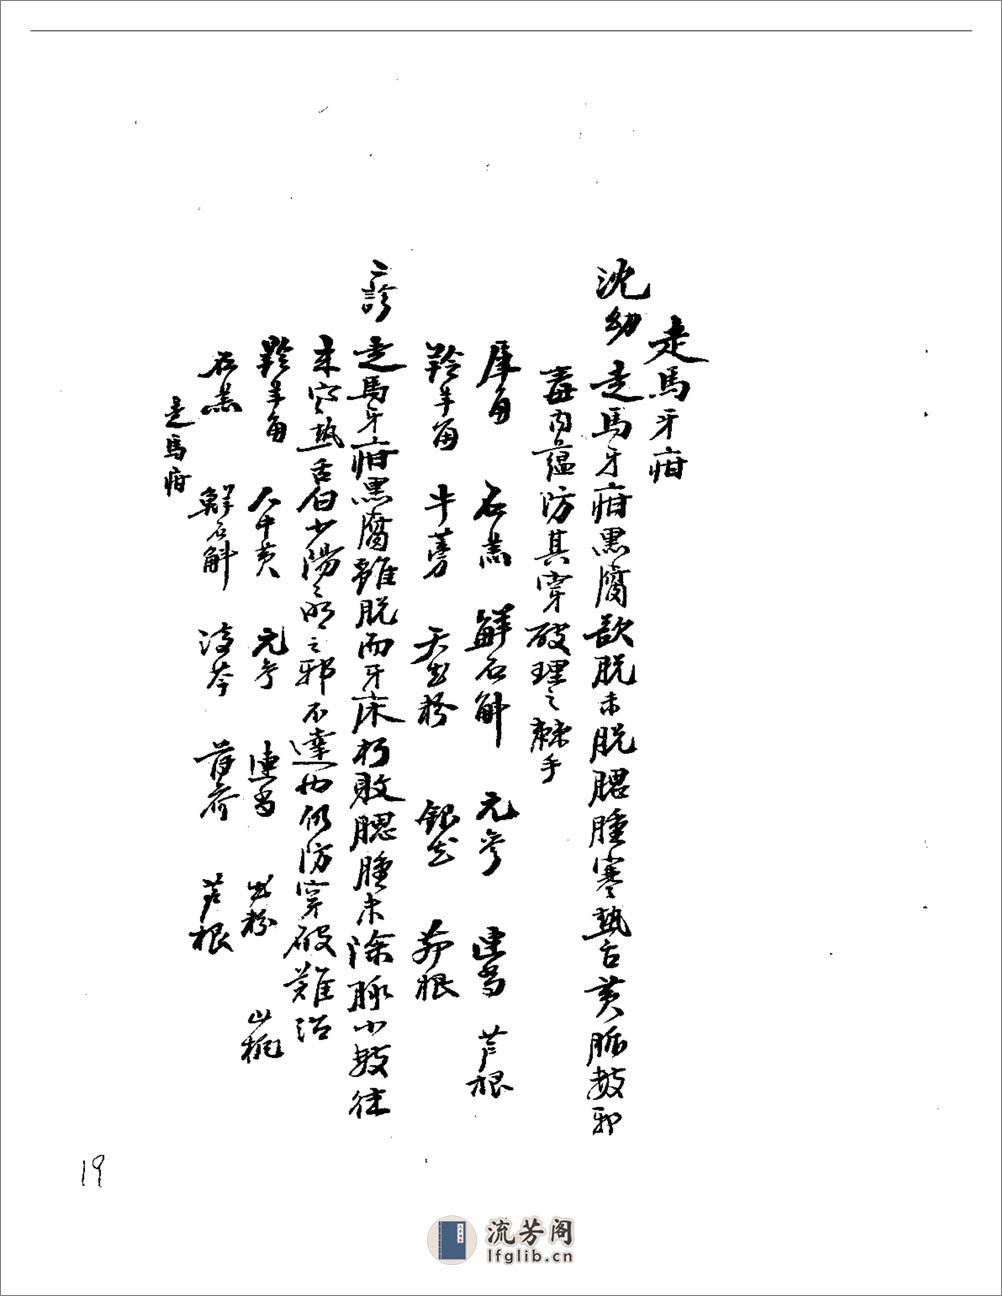 走馬牙疳
沈幼 走馬牙疳黑腐欲脱未脱腮腫寒熱舌黄脈数邪
毒内蘊防其穿破理之棘手
犀角 石羔 鮮石斛 元参 連召 芦根
羚羊角 牛蒡 天花粉 銀花 茅根
二診 走馬牙疳黑腐雖脱而牙床朽敗腮腫未除脈小数往
来寒熱舌白少陽陽明之邪不達也仍防穿破難治
羚羊角 人中黄 元参 連召 花粉 山梔
石羔 鮮石斛 淡芩 薄荷 芦根
走馬疳
19
流芳阁
lfglib.cn